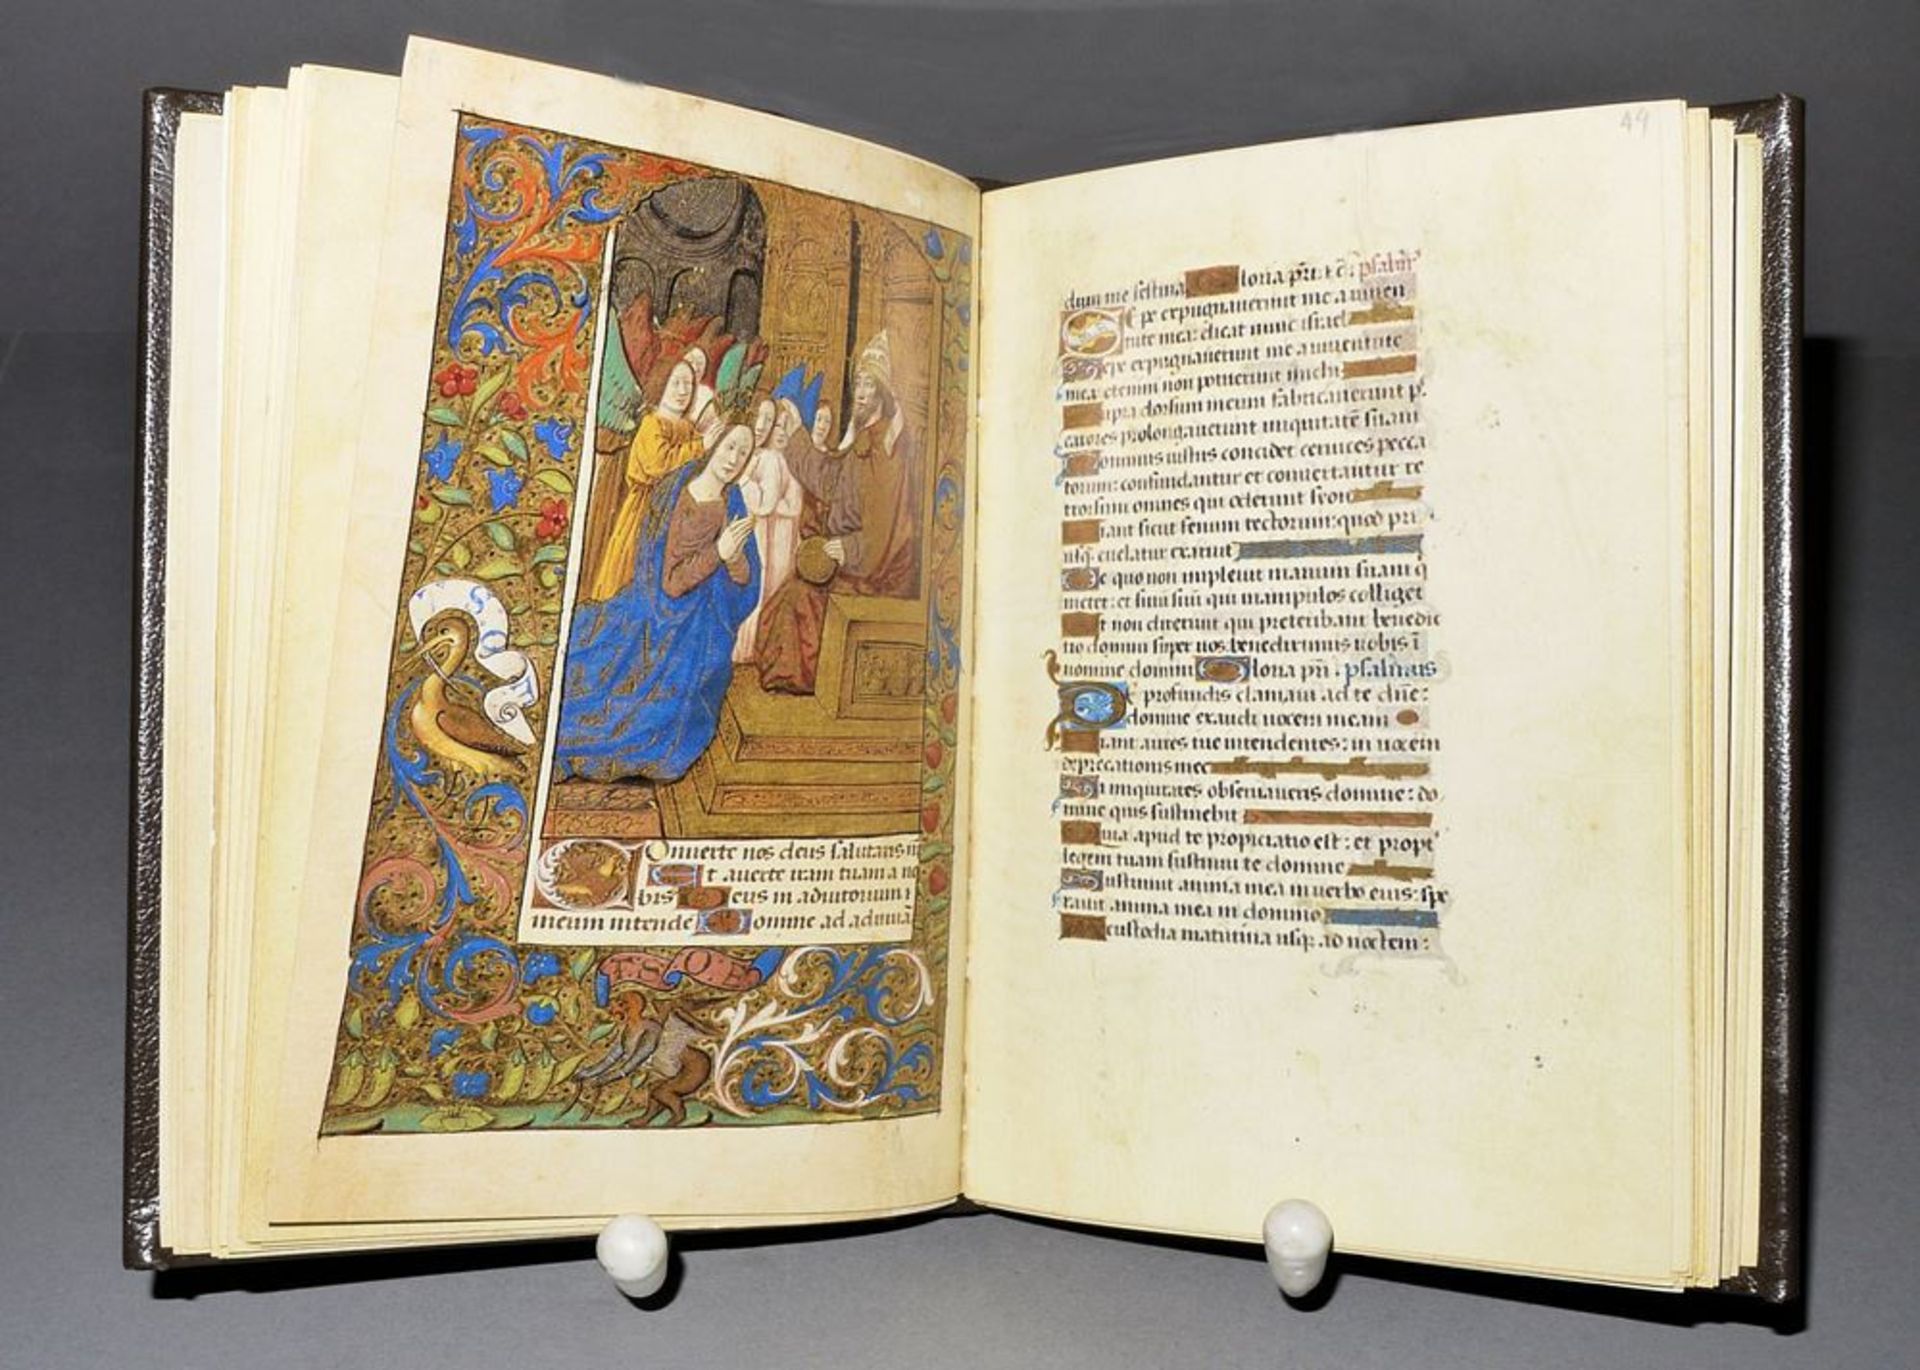 Onuerte nos deus salutaris n
Et auerte iram tuam a no
bis Deus in adiutorium
meum intende Domine ad adiuuā
49
dum me festina Gloria pri: psalm'
Sepe expugnauerunt me a iuuen
tute mea: dicat nunc israel
Sepe expugnauerunt me a iuuentute
mea: etenim non potuerunt michi
Supra dorsum meum fabricauerunt p
catores prolongauerunt iniquitatē suam
Dominus iustus concidet ceruices pecca
torum: confundantur et conuertantur re
trorsum omnes qui oderunt syon
Fiant sicut fenum tectorum: quod pri
usq; euelatur exaruit
De quo non impleuit manum suam q
metet: et sinū suū qui manipulos colliget
Et non dixerunt qui preteribant benedic
tio domini super nos benediximus uobis ī
nomine domini Gloria pri. psalmus
De profundis clamaui ad te dñe:
domine exaudi uocem meam
Fiant aures tue intendentes: in uocem
deprecationis mee
Si iniquitates obseruaueris domine: do
mine quis sustinebit
Quia apud te propiciatio est: et propt'
legem tuam sustinui te domine
Sustinuit anima mea in uerbo eius: spe
rauit anima mea in domino
A custodia matutina usq; ad noctem: